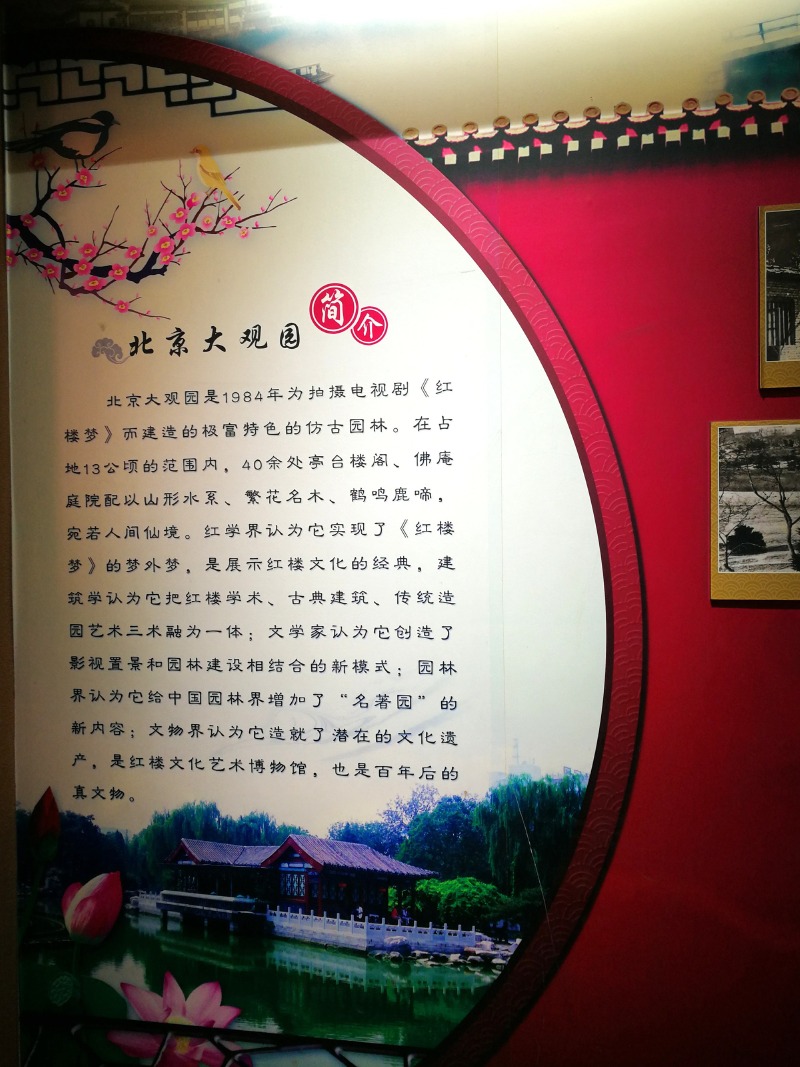 北京大观园简介
北京大观园是1984年为拍摄电视剧《红
楼梦》而建造的极富特色的仿古园林。在占
地13公顷的范围内，40余处亭台楼阁、佛庵
庭院配以山形水系、繁花名木、鹤鸣鹿啼，
宛若人间仙境。红学界认为它实现了《红楼
梦》的梦外梦，是展示红楼文化的经典，建
筑学认为它把红楼学术、古典建筑、传统造
园艺术三术融为一体；文学家认为它创造了
影视置景和园林建设相结合的新模式；园林
界认为它给中国园林界增加了“名著园”的
新内容；文物界认为它造就了潜在的文化遗
产，是红楼文化艺术博物馆，也是百年后的
真文物。